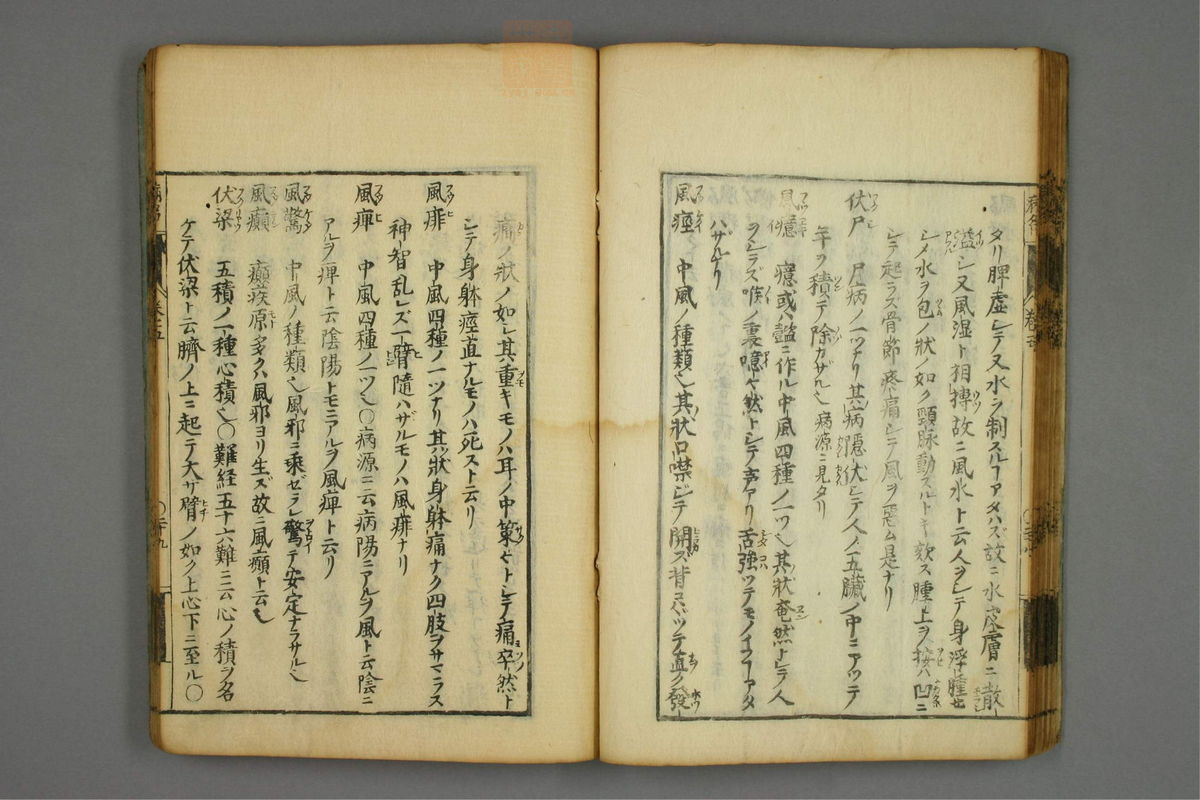 タリ脾虚シテ又水ヲ制スルヿアタハズ故ニ水皮膚ニ散
溢シ又風湿ト相搏故ニ風水ト云人ヲシテ身浮腫セ
シメ水ヲ包ノ状ノ如ク頸脉動スルトキ欬ス腫上ヲ按ハ凹ニ
シテ起ラズ骨節疼痛シテ風ヲ惡ム是ナリ
伏尸 尸病ノ一ツナリ其病隱伏シテ人ノ五臓ノ中ニアツテ
年ヲ積テ除カザル也病源ニ見タリ
風癔 癔或ハ懿ニ作ル中風四種ノ一ツ也其狀奄然トシテ人
ヲシラズ喉ノ裏噫々然トシテ声アリ舌強ツテモノイフヿアタ
ハザルナリ
風痙 中風ノ種類也其狀口噤シテ開ズ背コハバツテ直ク發
痛ノ狀ノ如シ其重キモノハ耳ノ中策々トシテ痛卒然ト
シテ身躰痙直ナルモノハ死スト云リ
風痱 中風四種ノ一ツナリ其狀身躰痛ナク四肢ヲサマラズ
神智乱レズ一臂隨ハザルモノハ風痱ナリ
風痺 中風四種ノ一ツ也〇病源ニ云病陽ニアルヲ風ト云陰ニ
アルヲ痺ト云陰陽トモニアルヲ風痺ト云リ
風驚 中風ノ種類也風邪ニ乘ゼラレ驚テ安定ナラサル也
風癲 癲疾原多クハ風邪ヨリ生ズ故ニ風癲ト云也
伏梁 五積ノ一種心積也〇難経五十六難ニ云心ノ積ヲ名
ケテ伏梁ト云臍ノ上ニ起テ大サ臂ノ如ク上心下ニ至ル〇